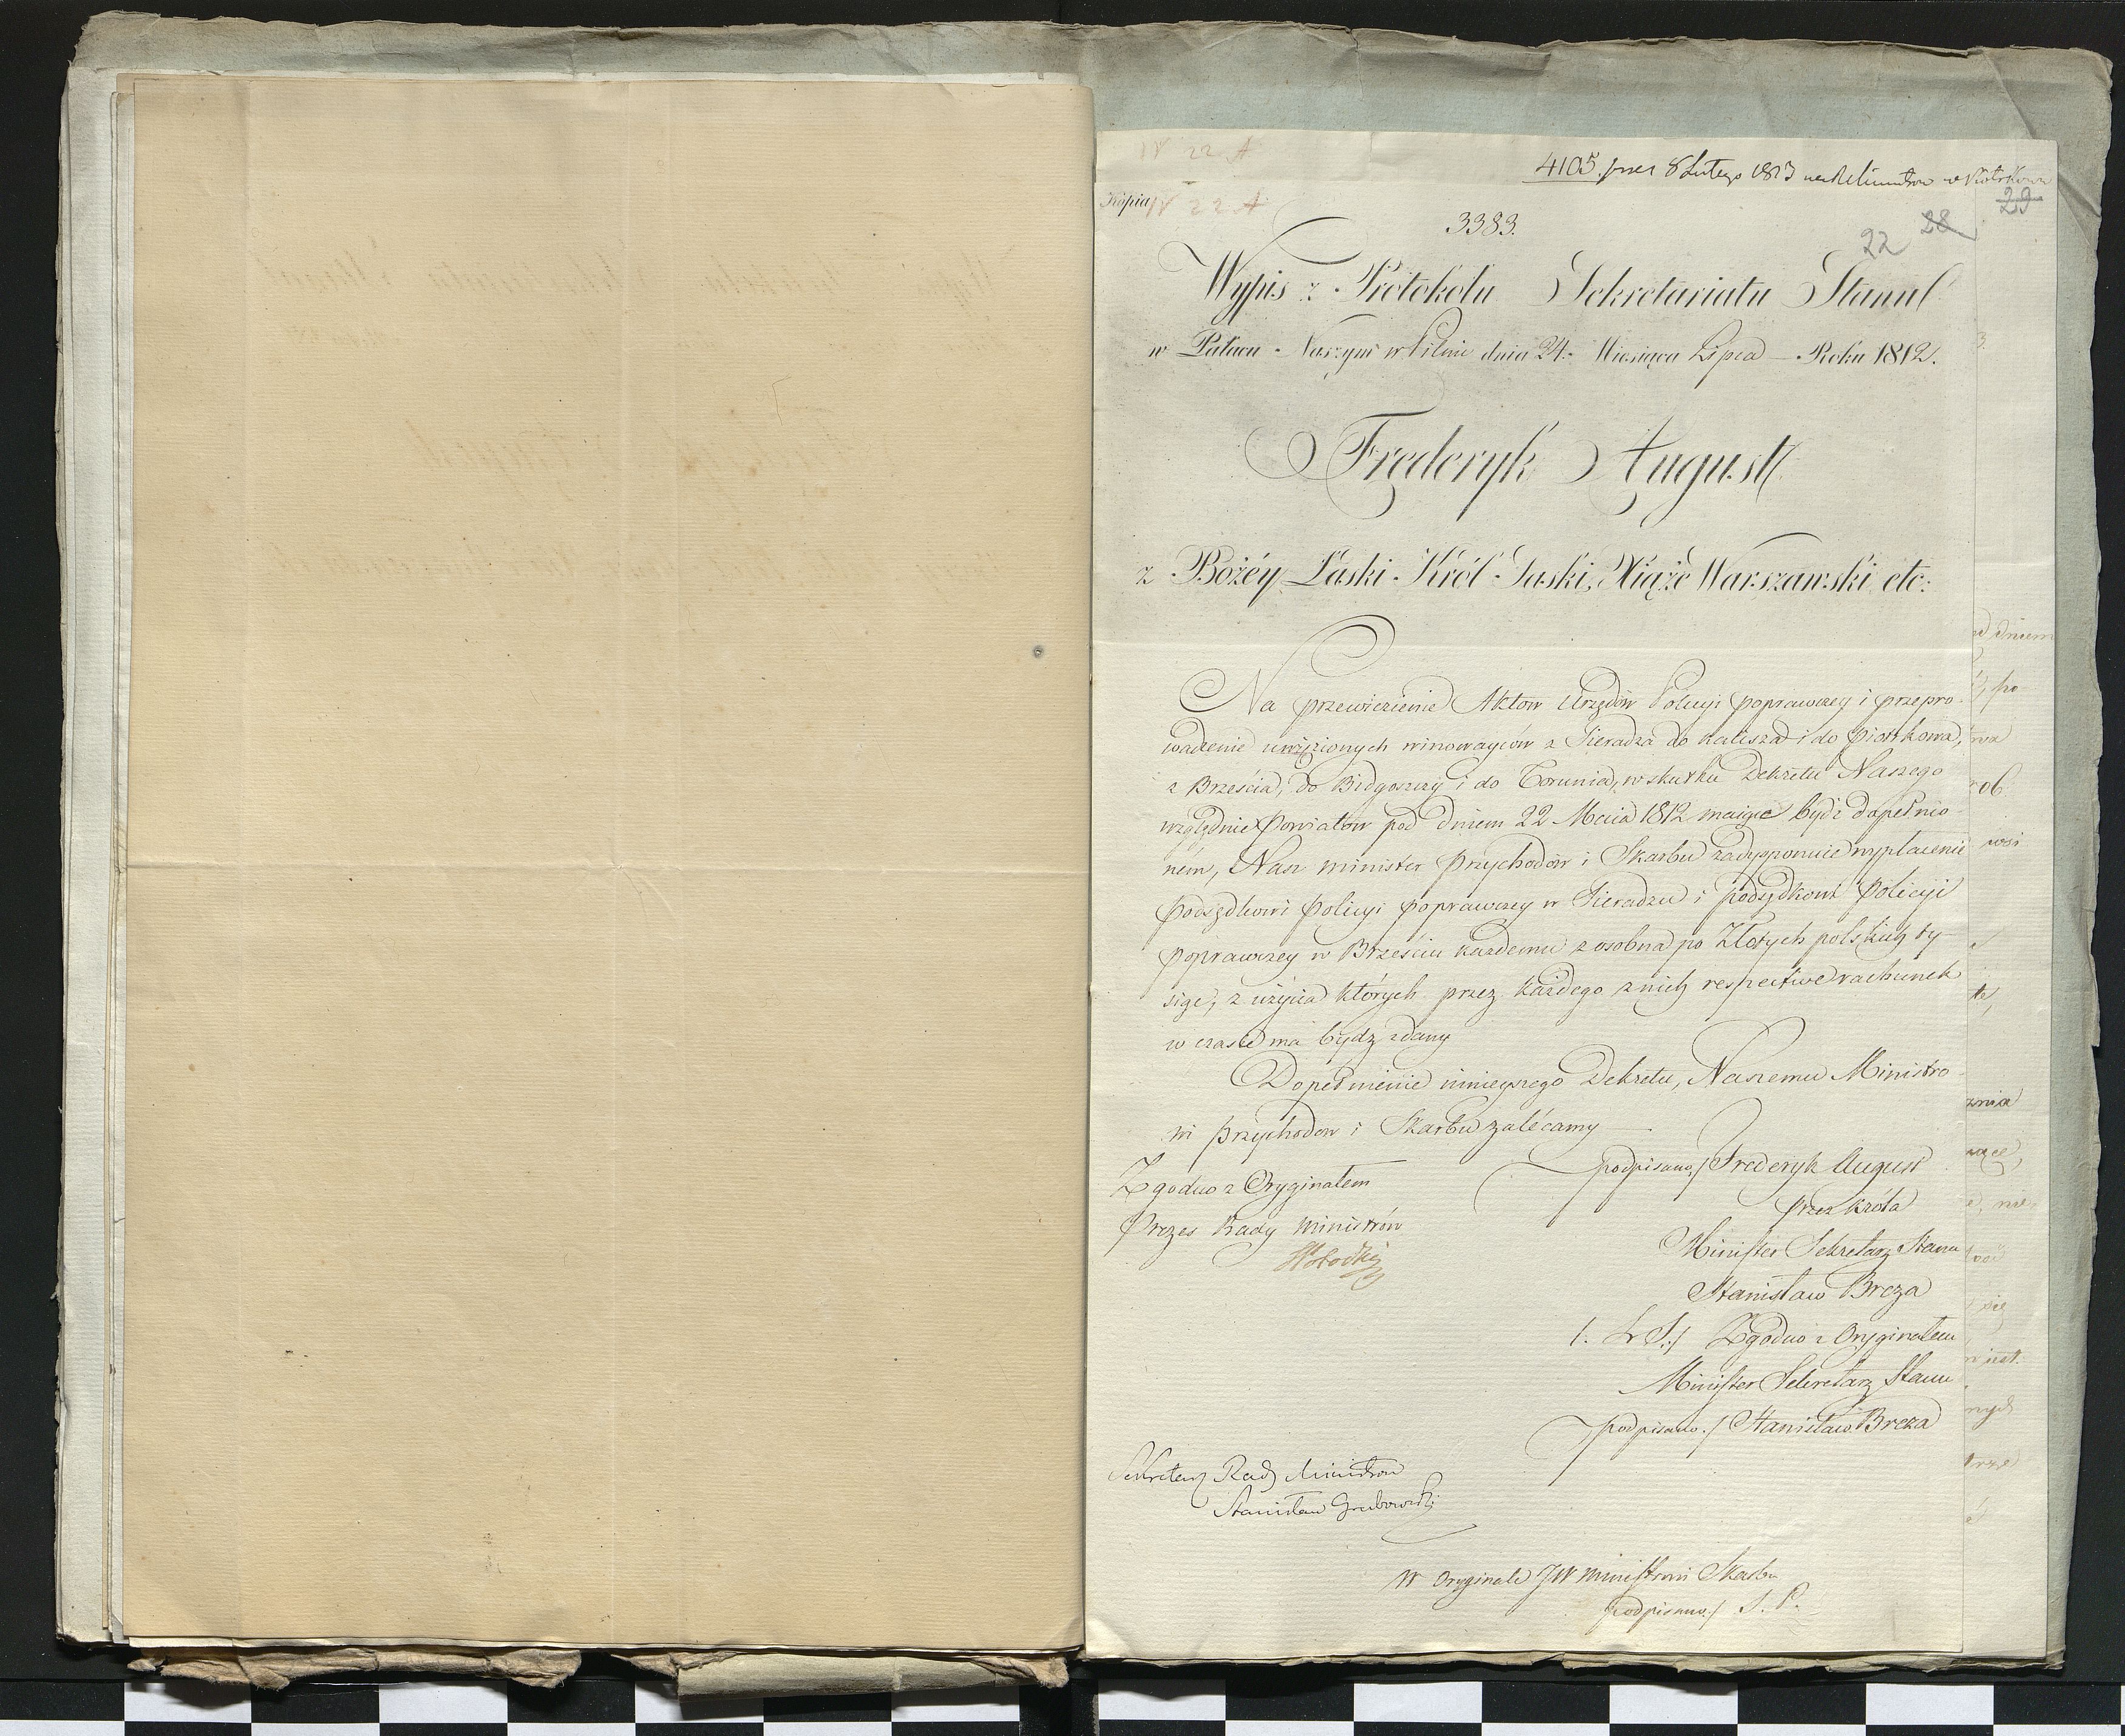 IV 22 A
4105. 8 Lutego 1813
Kopia IV 22 A
29
3383.
22 28
Wypis z Protokółu Sekretariatu Stanu
w Pałacu Naszym w Pilnic dnia 24. Miesiąca Lipca Roku 1812.
Fryderyk August
z Bożéy Łaski Król Saski, Xiążę Warszawski etc:
Na przewiezienie Aktow Urzędów Policyi poprawczey i przepro-
wadzenie uwięzionych winowayców z Sieradza do Kalisza i do Piotrkowa,
z Brześcia, do Bidgoszczy i do Torunia, w skutku Dekretu Naszego
względnie Powiatow pod dniem 22 Maia 1812 maiące bydź dopełnio-
ném, Nasz minister Przychodów i Skarbu zadysponuie wypłacenie
Podsędkowi Policyi poprawczey w Sieradzu i Podsędkowi Policyi
poprawczey w Brześciu każdemu z osobna po Złotych polskich ty-
siąc, z użycia których przez każdego z nich respective rachunek
w czasie ma bydź zdany
Dopełnienie ninieyszego Dekretu, Naszemu Ministro-
wi Przychodow i Skarbu zalécamy
podpisano/ Fryderyk August
Zgodno z Oryginałem
przez Króla
Prezes Rady Ministrów
Minister Sekretarz Stanu
Stanisław Breza
/. L. S./ Zgodno z Oryginałem
Minister Sekretarz Stanu
podpisano./ Stanisław Breza
Sekretarz Rady Ministrow
Stanisław Grabowski
W Oryginale JW Ministrowi Skarbu
podpisano./ S. P.